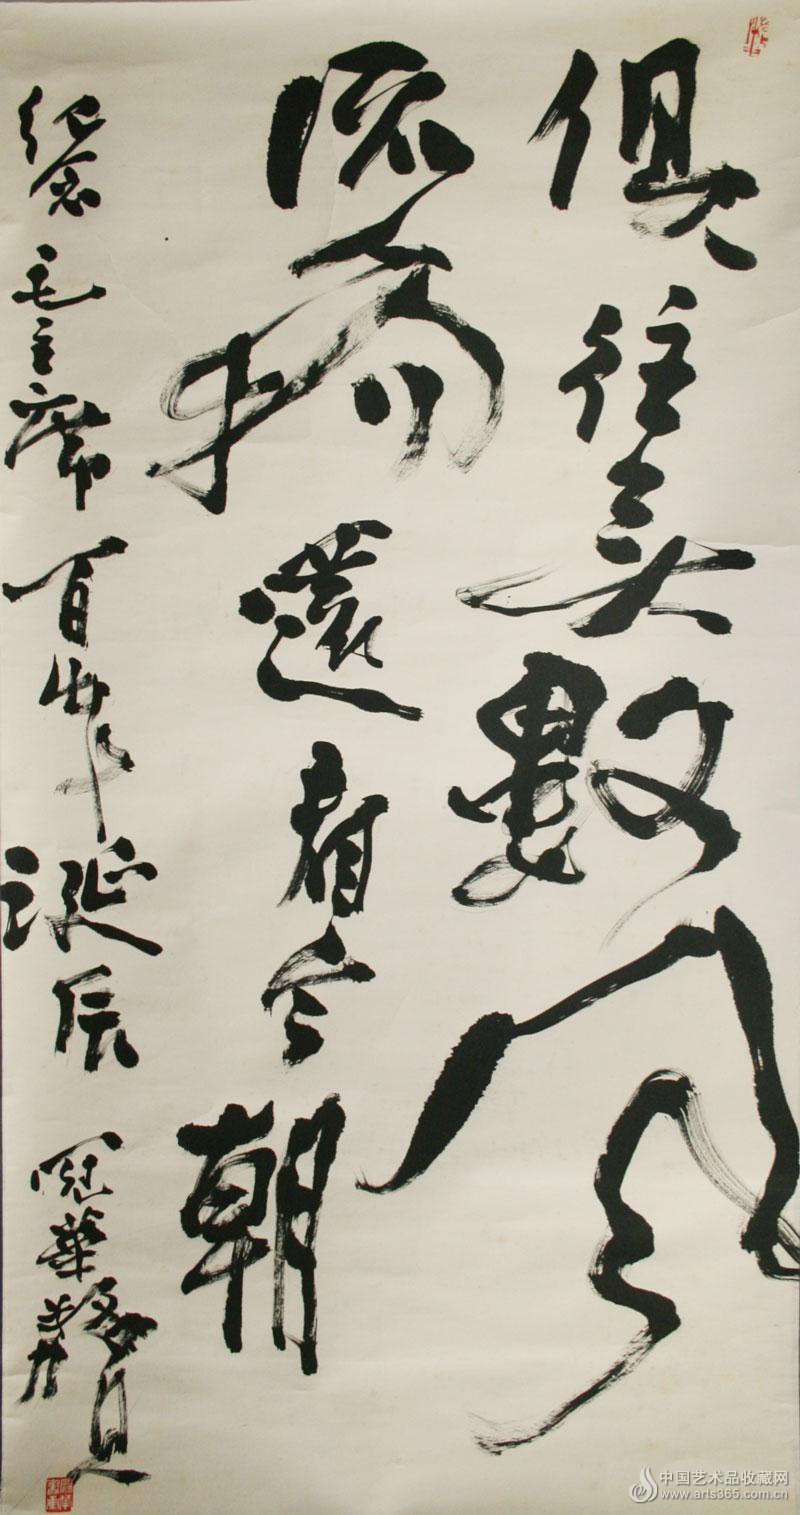 俱往矣數风
流人物還看今朝
纪念毛主席百年诞辰
中国艺术品收藏网
www.arts365.com.cn